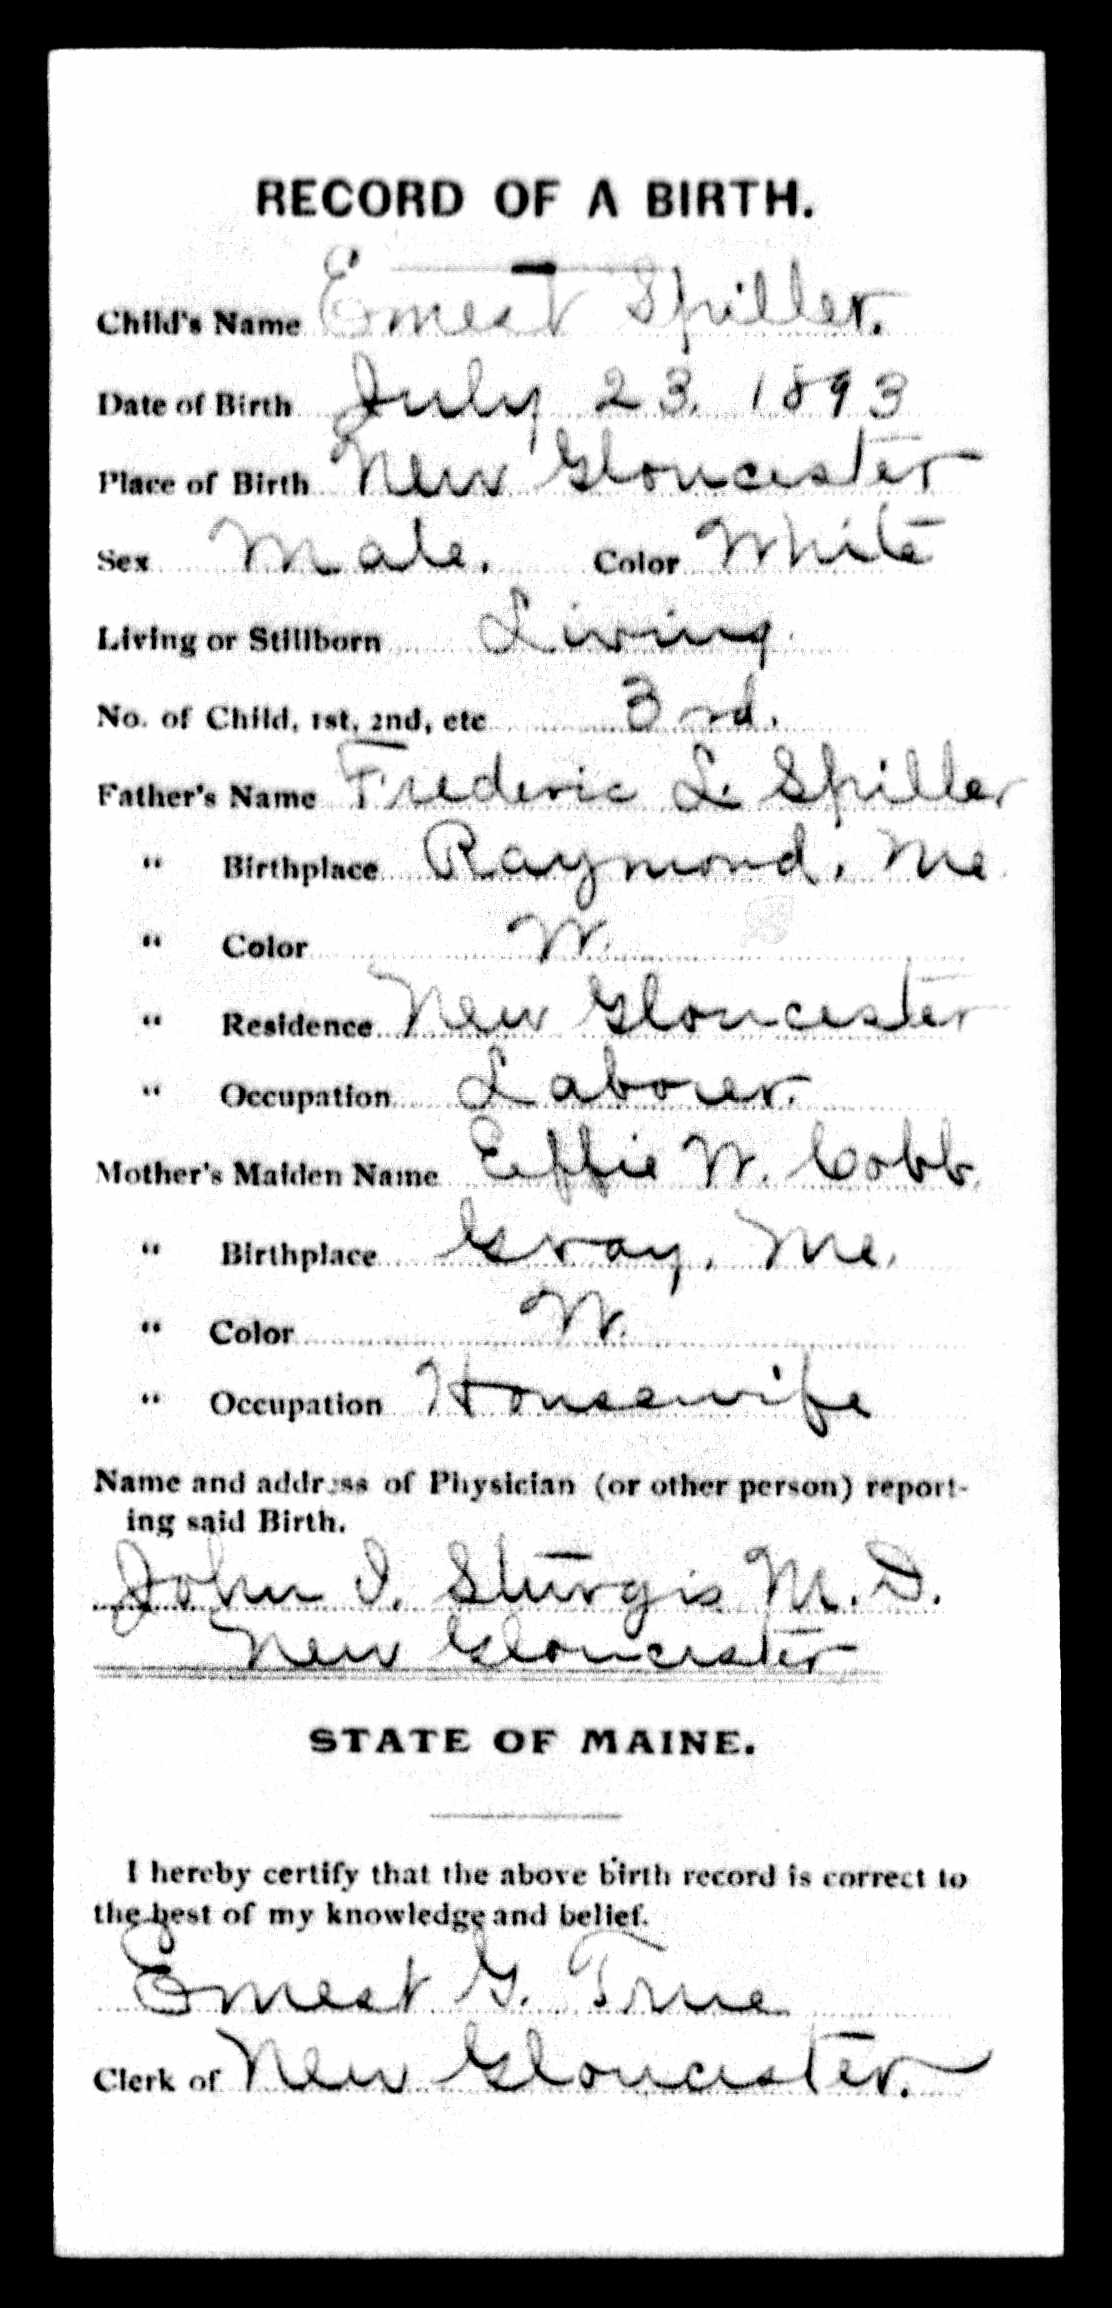 RECORD OF A BIRTH.
Child's Name Ernest Spiller.
Date of Birth July 23, 1893
Place of Birth New Gloucester
Sex Male. Color White
Living or Stillborn Living
No. of Child, 1st, 2nd, etc 3rd.
Father's Name Frederic L. Spiller
" Birthplace Raymond, Me
" Color W.
" Residence New Gloucester
" Occupation Laborer.
Mother's Maiden Name Effie W. Cobb
" Birthplace Gray, Me.
" Color W.
" Occupation Housewife
Name and address of Physician (or other person) report-
ing said Birth.
John I. Sturgis M. D.
New Gloucester
STATE OF MAINE.
I hereby certify that the above birth record is correct to
the best of my knowledge and belief.
Ernest G. True
Clerk of New Gloucester.